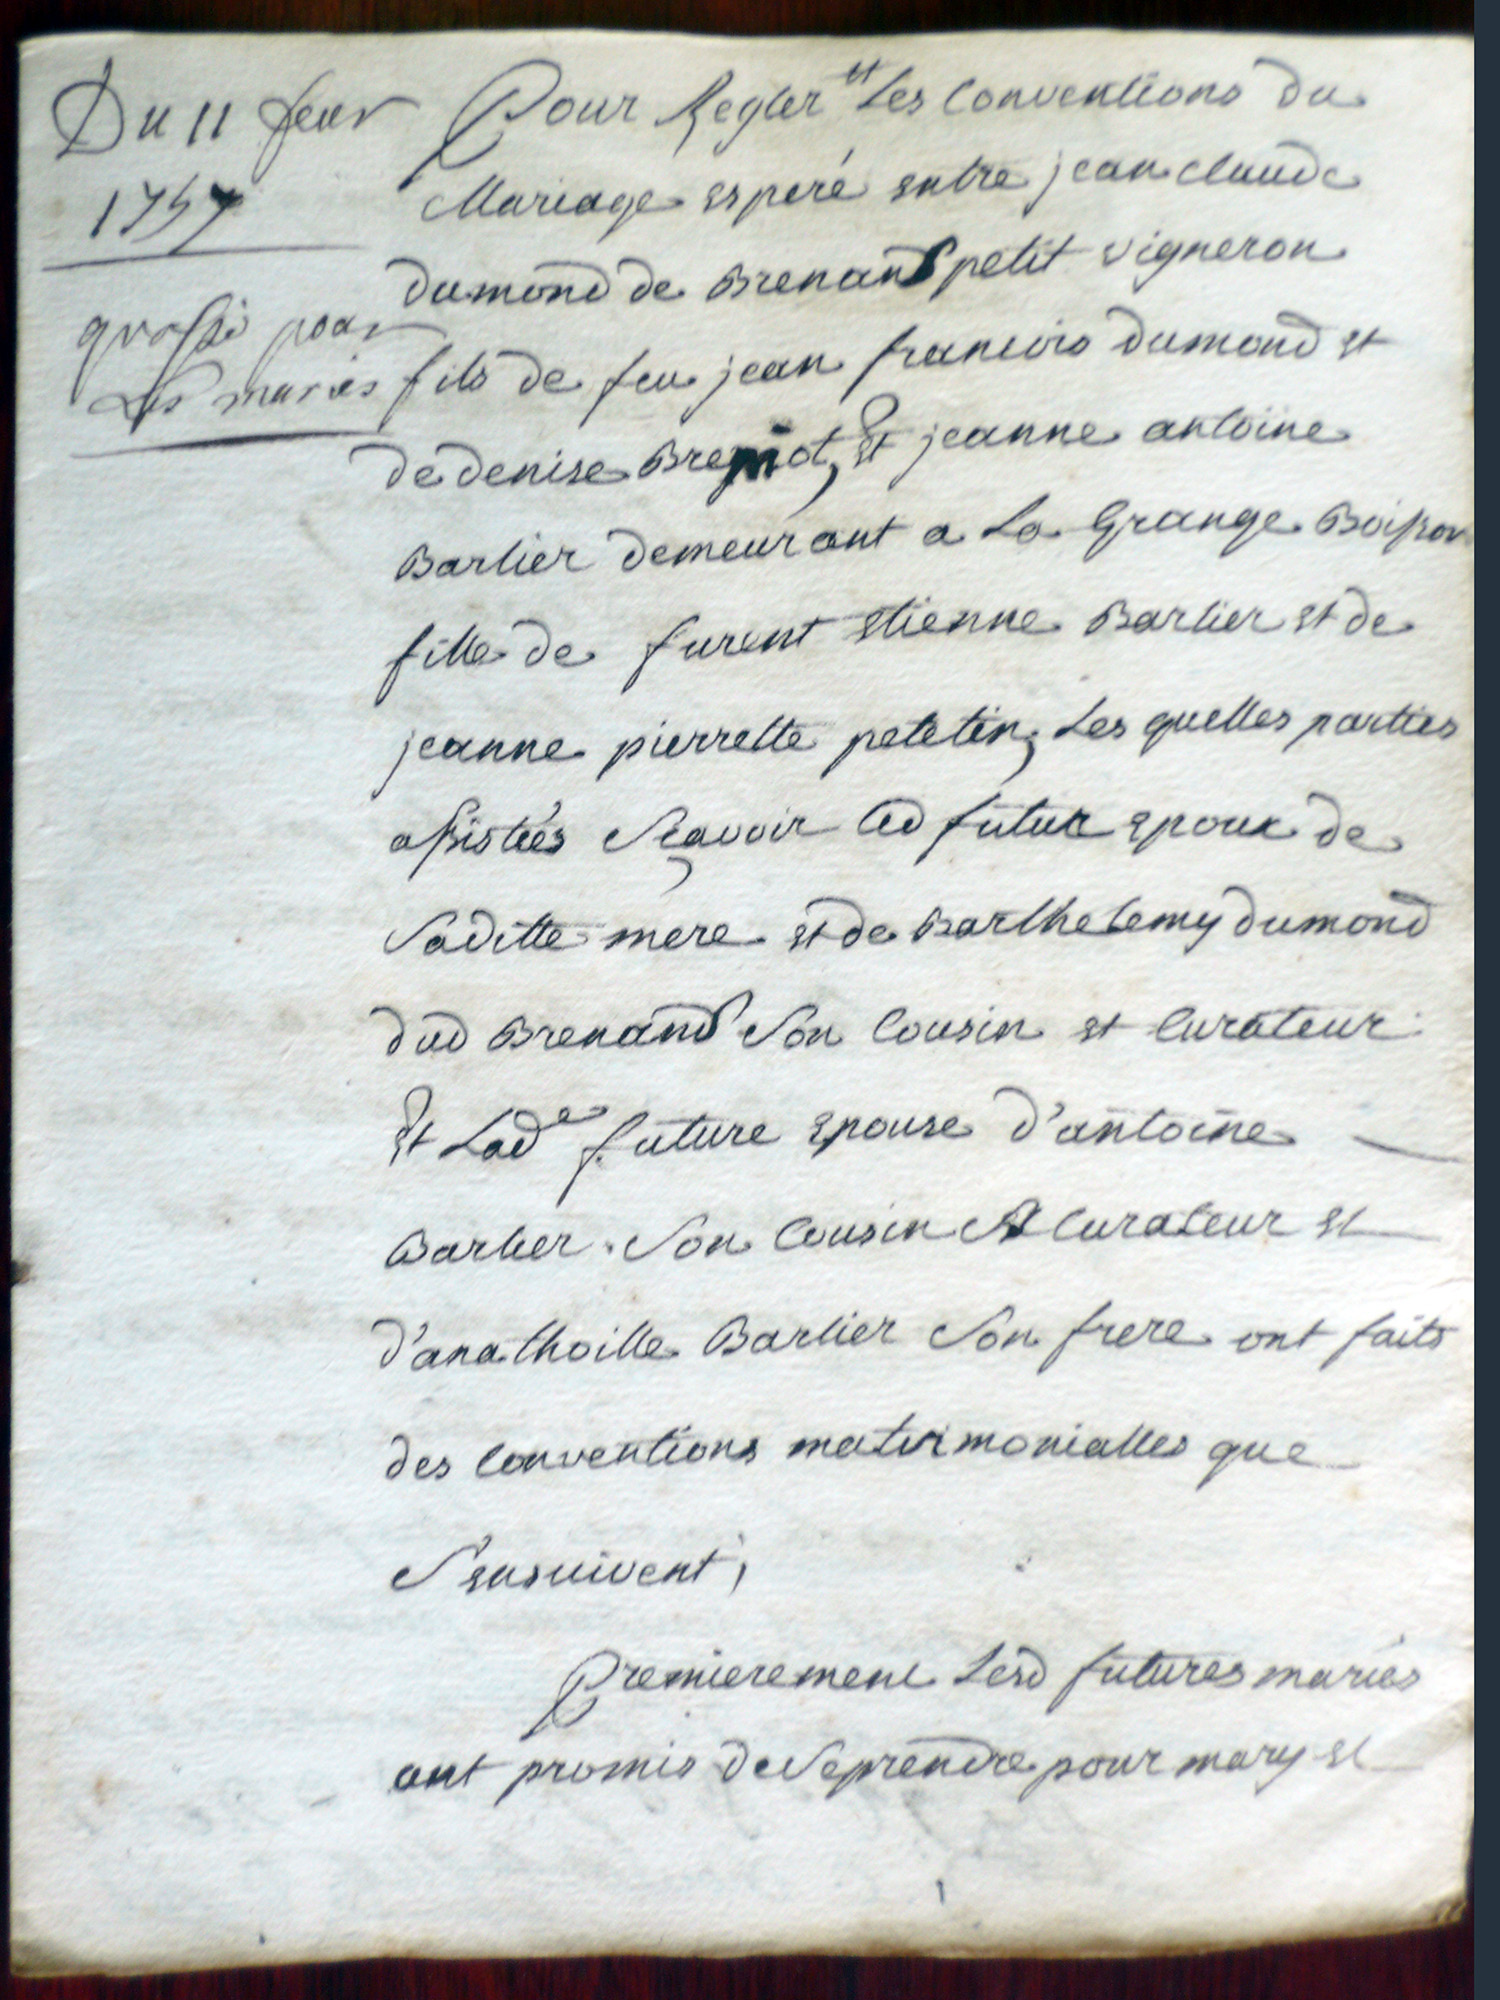 Du 11 feur
1757
grossé pour
Les mariés
Pour Regler et Les Conventions du
Mariage esperé entre jean claude
dumond de Brenans petit vigneron
fils de feu jean francois dumond et
de denise Bregnot, et jeanne antoine
Barlier demeurant a La Grange Boisson
fille de furent etienne Barlier et de
jeanne pierrette petetin; Les quelles parties
assistées Sçavoir led futur epoux de
Saditte mere et de Barthelemy dumond
dud Brenans Son Cousin et Curateur
et Lade future epouse d'antoine
Barlier Son Cousin et Curateur et
d'anathoille Barlier Son frere ont faits
des Conventions matrimonialles que
S'ensuivent;
Premierement Lesd futures mariés
ont promis de Se prendre pour mary et